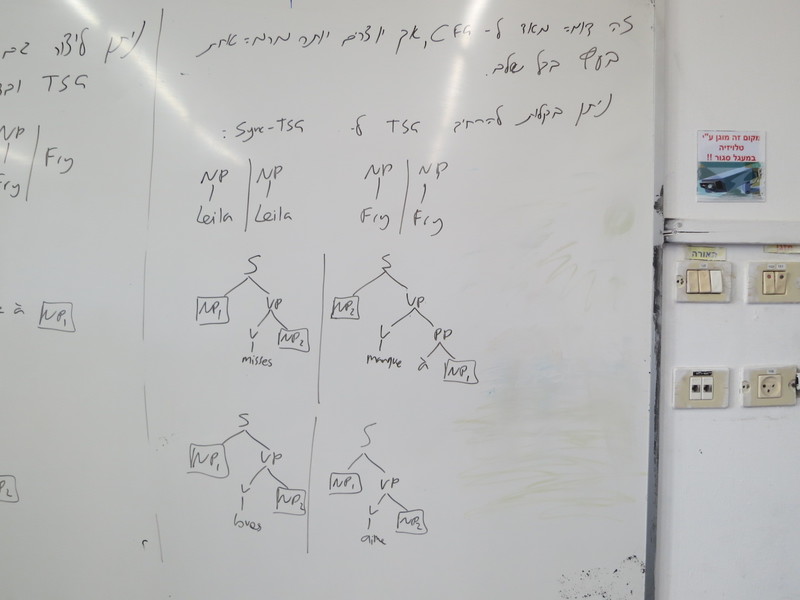 זה דומה מאד ל- CFG, אך יוצרים יותר מרמה אחת
בעץ בכל שלב.
ניתן בקלות להרחיב TSG ל- Sync-TSG:
NP | NP
Leila | Leila
NP | NP
Fry | Fry
S | S
NP1 VP | NP2 VP
V NP2 | V PP
misses | manque à NP1
S | S
NP1 VP | NP1 VP
V NP2 | V NP2
loves | aime
ניתן ליצור גם
TSG
NP | Fry
Fry
à NP1
מקום זה מוגן ע"י
טלויזיה
במעגל סגור !!
תאורה